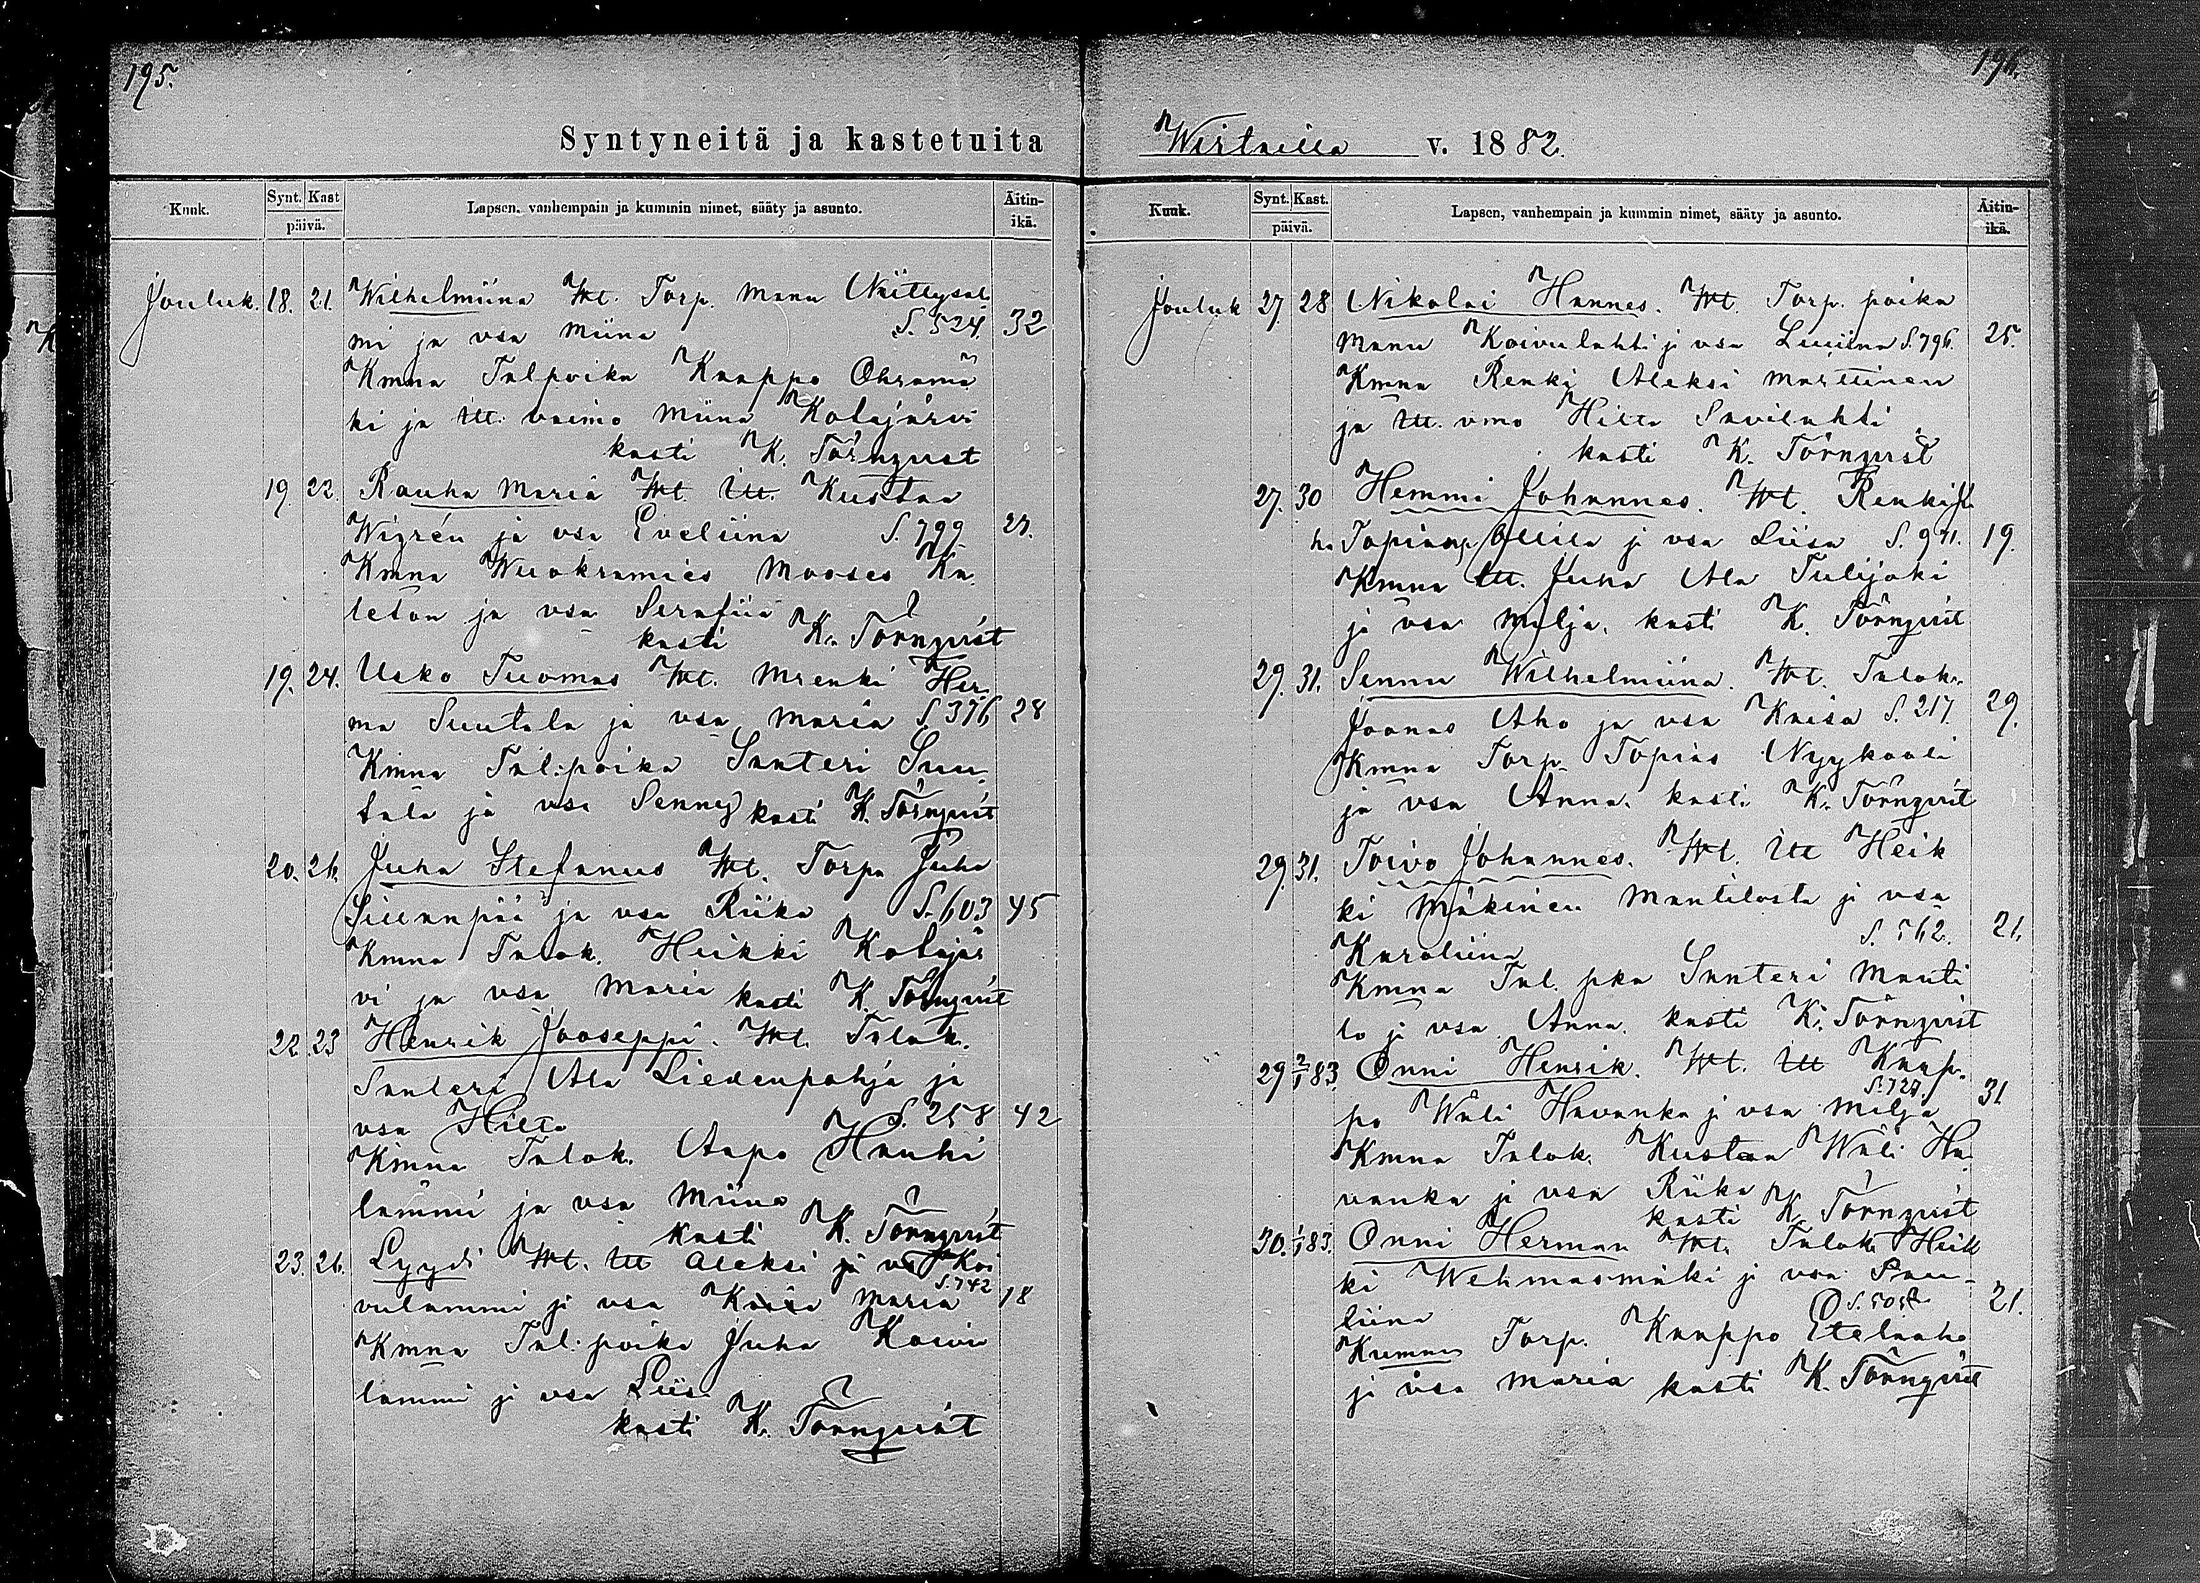 195.
Syntyneitä ja kastetuita
Kuuk.
Synt. Kast
päivä.
Lapsen, vanhempain ja kummin nimet, sääty ja asunto.
Äitin-
ikä.
Jouluk. 18. 21. Wilhelmiina Wt. Torp. Manu Niittysal
mi ja vsa Miina S. 524. 32
Kmna Talpoika Kaappo Ohramä
ki ja Itt. vaimo Miina Kotajärvi
kasti K. Törnqvist
19. 22. Rauha Maria Wt. Itt. Kustaa
Wigrén ja vsa Eveliina S. 799 27.
Kmna Wuokramies Mooses Ka
leton ja vsa Serafiia
kasti K. Törnqvist
19. 24. Usko Tuomas Wt. Mrenki Her
ma Suutala ja vsa Maria S. 376 28
Kmna Tal. poika Santeri Suu
tala ja vsa Senny kasti K. Törnqvist
20. 26. Juha Stefanus Wt. Torp. Juha
Siuanpää ja vsa Riika S. 603 45
Kmna Talok. Heikki Kotajär
vi ja vsa Maria kasti K. Törnqvist
22. 23 Henrik Jooseppi. Wt. Talok.
Santeri Ala Liedenpohja ja
vsa Hilta S. 258 42
Kmna Talok. Aapo Hauhi
lammi ja vsa Miina
kasti K. Törnqvist
23. 26. Lyydi Wt. Itt Aleksi Koi
S. 742
vulammi ja vsa Kaisa Maria 18
Kmna Tal. poika Juha Koivu
lammi ja vsa Liisa
kasti K. Törnqvist
196.
Wirtailla v. 1882.
Kuuk.
Synt. Kast.
päivä.
Lapsen, vanhempain ja kummin nimet, sääty ja asunto.
Äitin-
ikä.
Jouluk 27. 28 Nikolai Hannes. Wt. Torp. poika
Manu Koivulahti j vsa Luiina S. 796. 25.
Kmna Renki Aleksi Marttinen
ja Itt. vmo Hilta Savilahti
kasti K. Törnqvist
27. 30 Hemmi Johannes. Wt. Renki
Topias Ollila j vsa Liisa S. 971. 19.
Kmna Itt. Juha Ala Tulijoki
ja vsa Milja. kasti K. Törnqvist
29. 31. Sennu Wilhelmiina. Wt. Talok.
Joonas Aho ja vsa Kaisa S. 217. 29.
Kmna Torp. Topias Nyykooli
ja vsa Anna. kasti K. Törnqvist
29. 31. Toivo Johannes. Wt. Itt Heik
ki Mäkinen Mantilasta ja vsa
Karoliina S. 562. 21.
Kmna Tal. pka Santeri Manti
la j vsa Anna. kasti K. Törnqvist
29 2/1 83. Onni Henrik. Wt. Itt Kaap.
S. 727.
po Wäli Havanka j vsa Milja 31
Kmna Talok. Kustaa Wäli Ha
vanka ja vsa Riika
kasti K. Törnqvist
30. 1/1 83. Onni Herman Wt. Talok Heik
ki Wehmasmäki j vsa Pau-
liina S. 505 21.
Kumma Torp. Kaappo Etelaaho
ja vsa Maria kasti K. Törnqvist